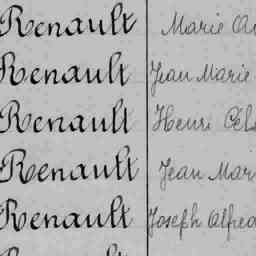 Renault Marie
Renault Jean Marie
Renault Henri
Renault Jean
Renault Joseph Alfred